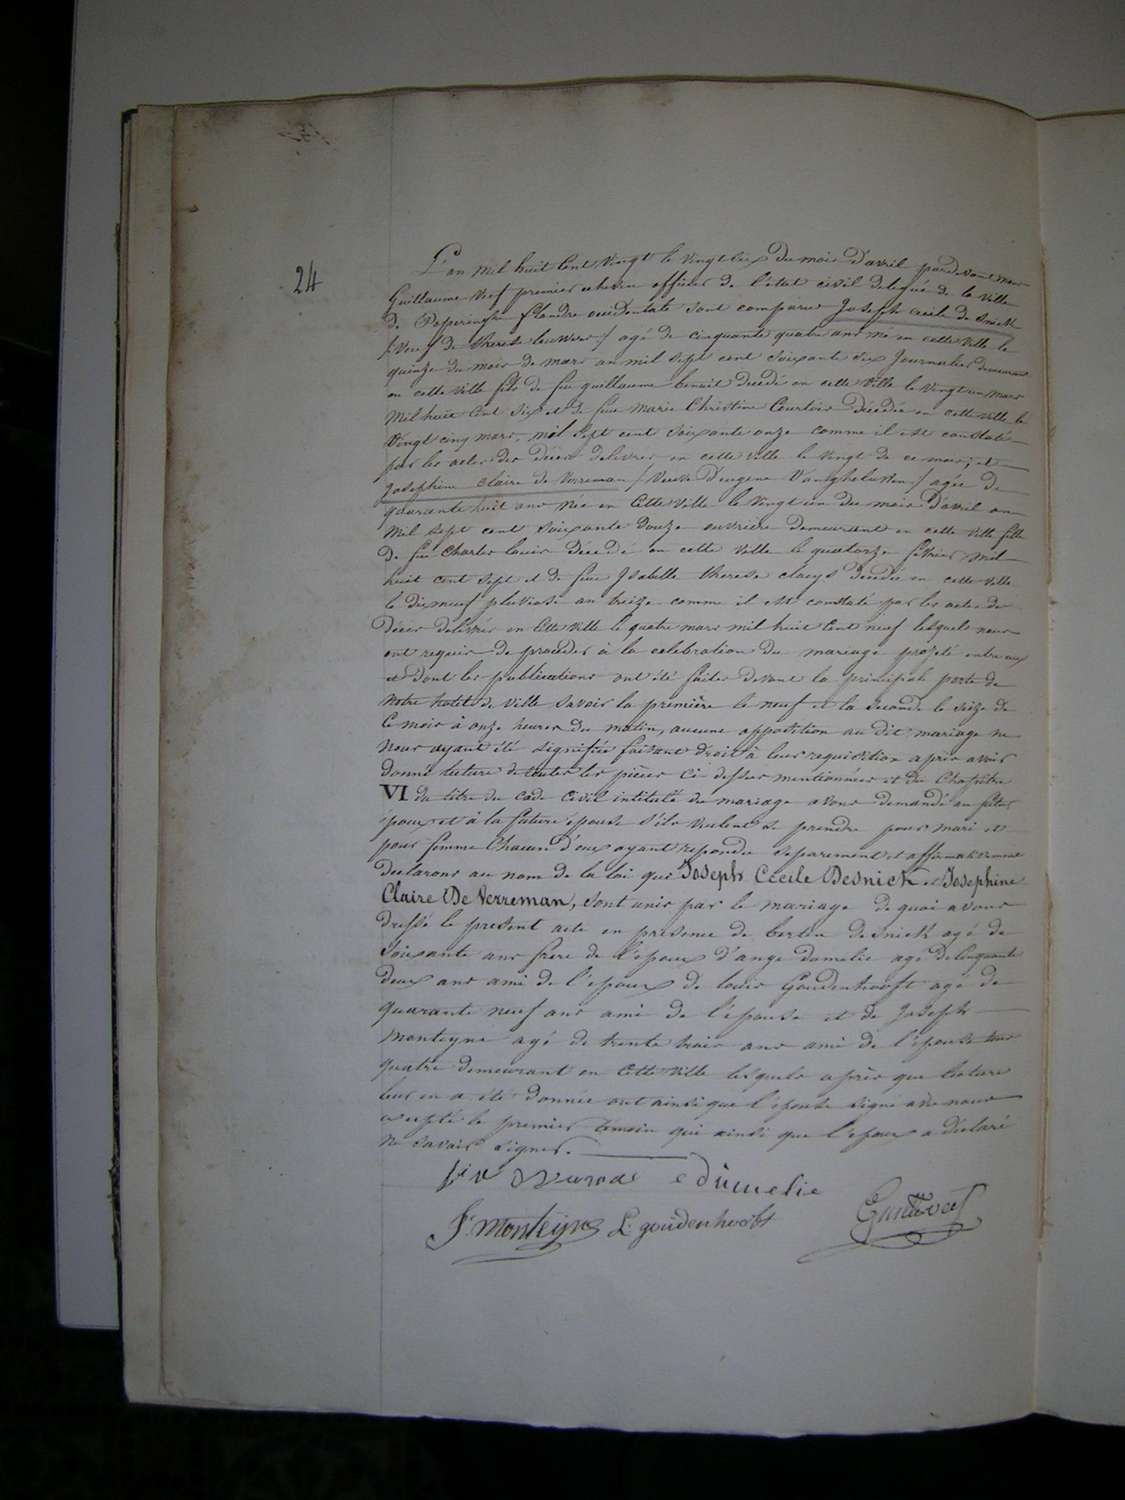 24
L'an mil huit Cent Vingt le Vingt six du mois D'avril pardevant nous
Guillaume Veef premier echevin officier de l'état civil delegué de la Ville
de Poperinghe flandre occidentale sont comparus Joseph Cecil de Snick
/ Veuf de Therese / agé de cinquante quatre ans né en cette Ville le
quinze du mois de mars an mil sept cent soixante six Journalier demeurant
en cette Ville fils de feu guillaume benoit decedé en cette Ville le Vingt un mars
mil huit Cent six et de feue Marie Christine Courtois décédée en cette ville le
Vingt cinq mars mil sept cent soixante onze comme il est constaté
par les actes des décès delivrés en cette ville le Vingt de ce mois; et
Josephine Claire de Verreman / Veuve D'eugene Vanghelusten / agée de
quarante huit ans née en Cette Ville le Vingt un du mois D'avril an
Mil sept cent soixante douze ouvriere demeurant en cette Ville fille
De feu Charles louis décédé en cette Ville le quatorze fevrier mil
huit cent sept et de feue Isabelle therese claeys decedée en cette Ville
le dix neuf pluviose an treize comme il est constaté par les actes de
Décès delivrés en Cette Ville le quatre mars mil huit Cent neuf lesquels nous
ont requis de proceder à la celebration du mariage projeté entre eux
et dont les publications ont été faites devant la principale porte de
Notre hotel de Ville savoir la première le neuf et la seconde le seize de
Ce mois à onze heures du matin, aucune opposition au dit mariage ne
Nous ayant été signifiée faisant droit à leur requisition après avoir
donné lecture de toutes les pièces ci dessus mentionnées et du Chapitre
VI du titre du Code Civil intitulé du mariage avons demandé au futur
epoux et à la future epouse s'ils veulent se prendre pour mari et
pour femme Chacun d'eux ayant repondu separement et affirmativement
Declarons au nom de la loi que Joseph Cécile Desnick et Josephine
Claire De Verreman, sont unis par le mariage de quoi avons
dressé le present acte en presence de bertin desnick agé de
soixante ans frere de l'epoux d'ange dumelie agé de Cinquante
deux ans ami de l'epoux de louis Goudenhooft agé de
quarante neuf ans ami de l'épouse et de Joseph
Monteyne agé de trente trois ans ami de l'épouse tous
quatre demeurant en Cette Ville lesquels après que lecture
leur en a été donnée ont ainsi que l'épouse signé avec nous
excepté le premier temoin qui ainsi que l'epoux a déclaré
ne savoir signer.
e Dumelie
J. Monteyne L. goudenhooft